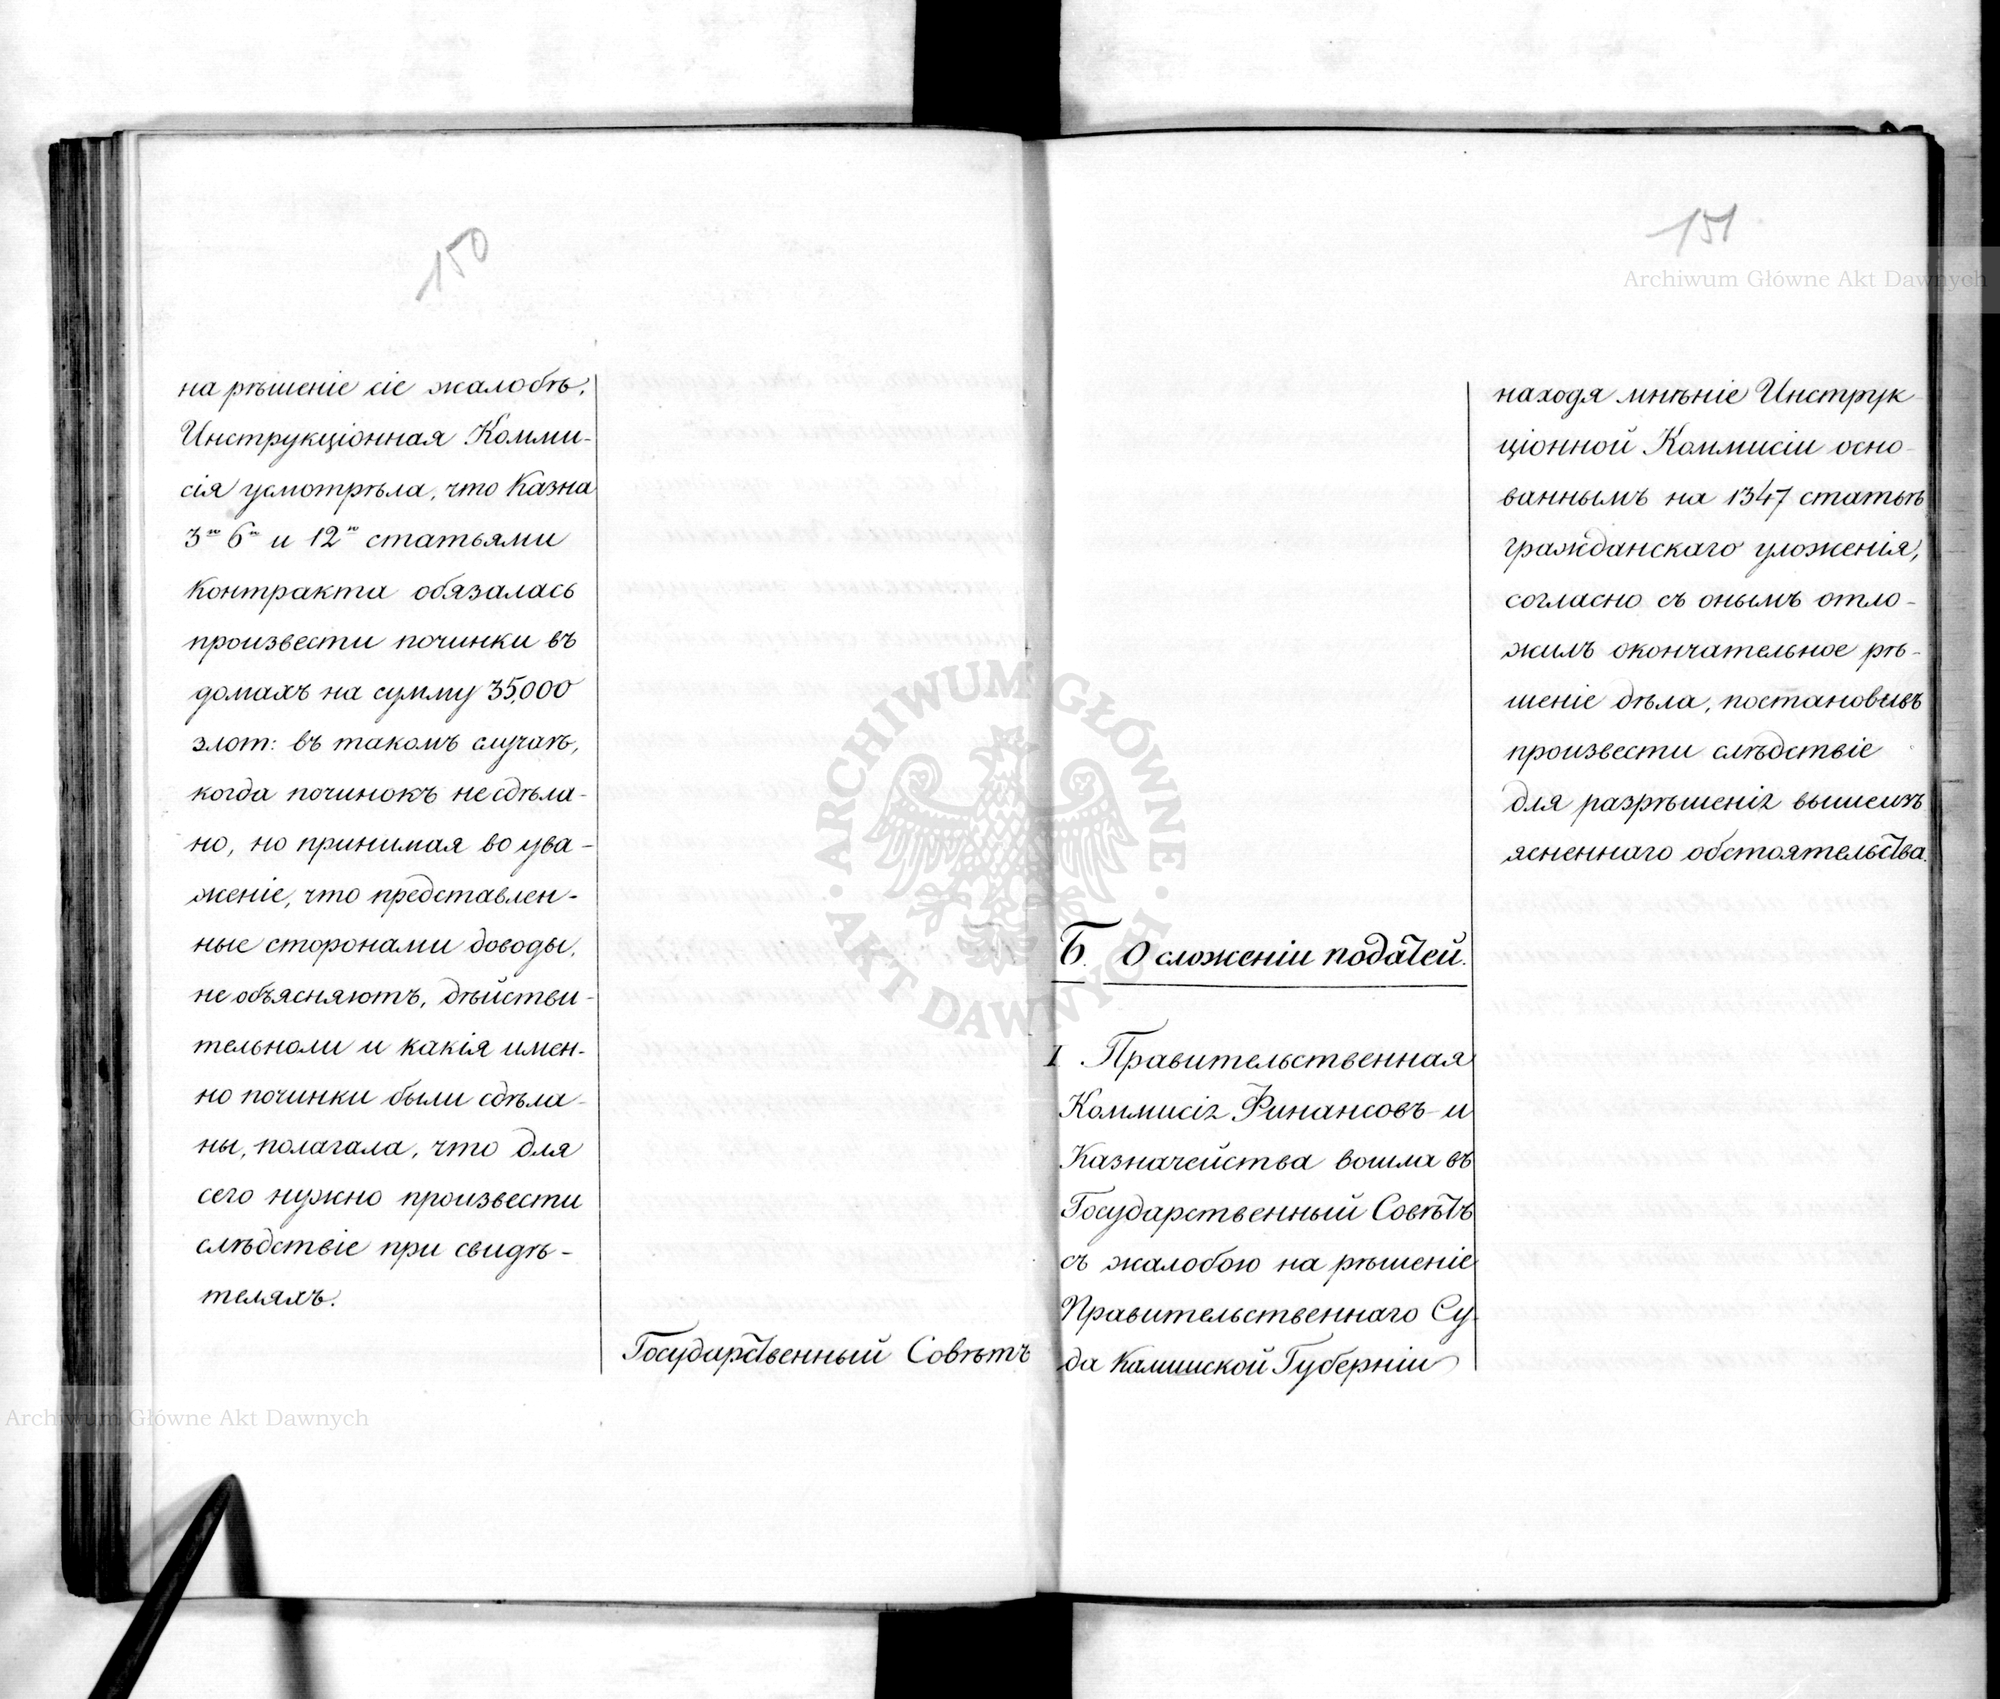 150
на рѣшеніе сіе жалобѣ,
Инструкціонная Комми-
сія усмотрѣла, что Казна
3ю 6ю и 12ю статьями
контракта обязалась
произвести починки въ
домахъ на сумму 35,000
злот: въ такомъ случаѣ,
когда починокъ не сдѣла-
но, но принимая во ува-
женіе, что представлен-
ные сторонами доводы,
не объясняютъ, дѣйстви-
тельноли и какія имен-
но починки были сдѣла-
ны, полагала, что для
сего нужно произвести
слѣдствіе при свидѣ-
теляхъ.
Государственный Совѣтъ
151
находя мнѣніе Инструк-
ціонной Коммисіи осно-
ваннымъ на 1347 статьѣ
гражданскаго уложенія,
согласно съ онымъ отло-
жилъ окончательное рѣ-
шеніе дѣла, постановивъ
произвести слѣдствіе
для разрѣшенія вышеизъ
ясненнаго обстоятельства.
Б. О сложеніи податей.
I. Правительственная
Коммисія Финансовъ и
Казначейства вошла въ
Государственный Совѣтъ
съ жалобою на рѣшеніе
Правительственнаго Су-
да Калишской Губерніи
Archiwum Główne Akt Dawnych
ARCHIWUM GŁÓWNE
AKT DAWNYCH
Archiwum Główne Akt Dawnych